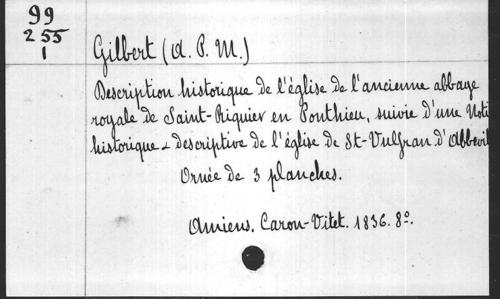 99
255
1
Gilbert (A. P. M.)
Description historique de l'église de l'ancienne abbaye
royale de Saint-Riquier en Ponthieu, suivie d'une Noti
historique & descriptive de l'église de St-Vulfran d'Abbevil
Ornée de 3 planches.
Amiens. Caron-Vitet. 1836. 8º.